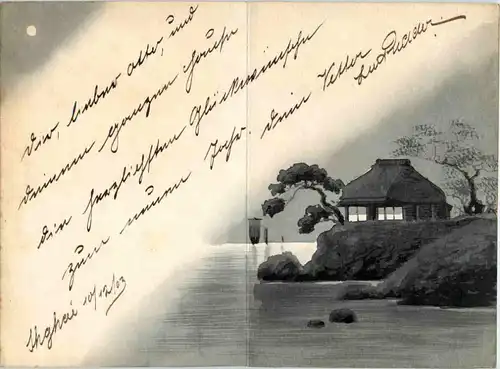 Dir, lieber Otto, und
deinem ganzen Hause
die herzlichsten Glückwünsche
zum neuen Jahr. dein Vetter
Shghai 10/12/03